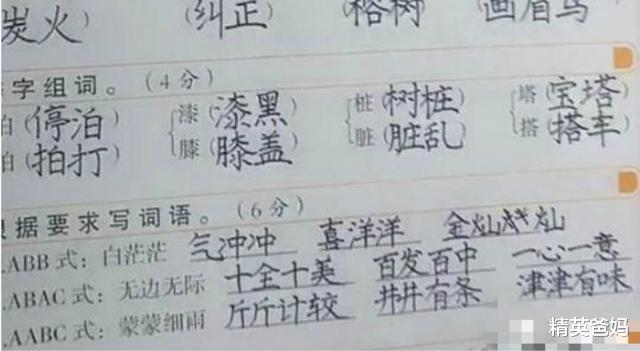 炭火 (纠正) (榕树) (画眉鸟
字组词。(4分)
(停泊) 漆(漆黑) 桩(树桩) 塔(宝塔
(拍打) 膝(膝盖) 脏(脏乱) 搭(搭车
根据要求写词语。(6分)
.ABB 式：白茫茫 气冲冲 喜洋洋 金灿灿
.ABAC 式：无边无际 十全十美 百发百中 一心一意
.AABC 式：蒙蒙细雨 斤斤计较 井井有条 津津有味
精英爸妈